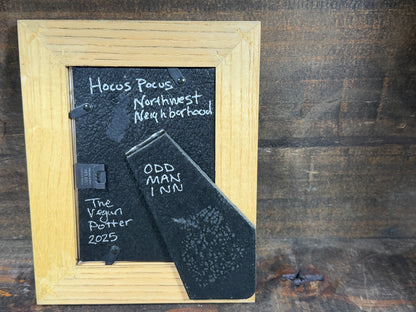 Hocus Pocus
Northwest
Neighborhood
ODD
MAN
INN
The
Vegan
Potter
2025